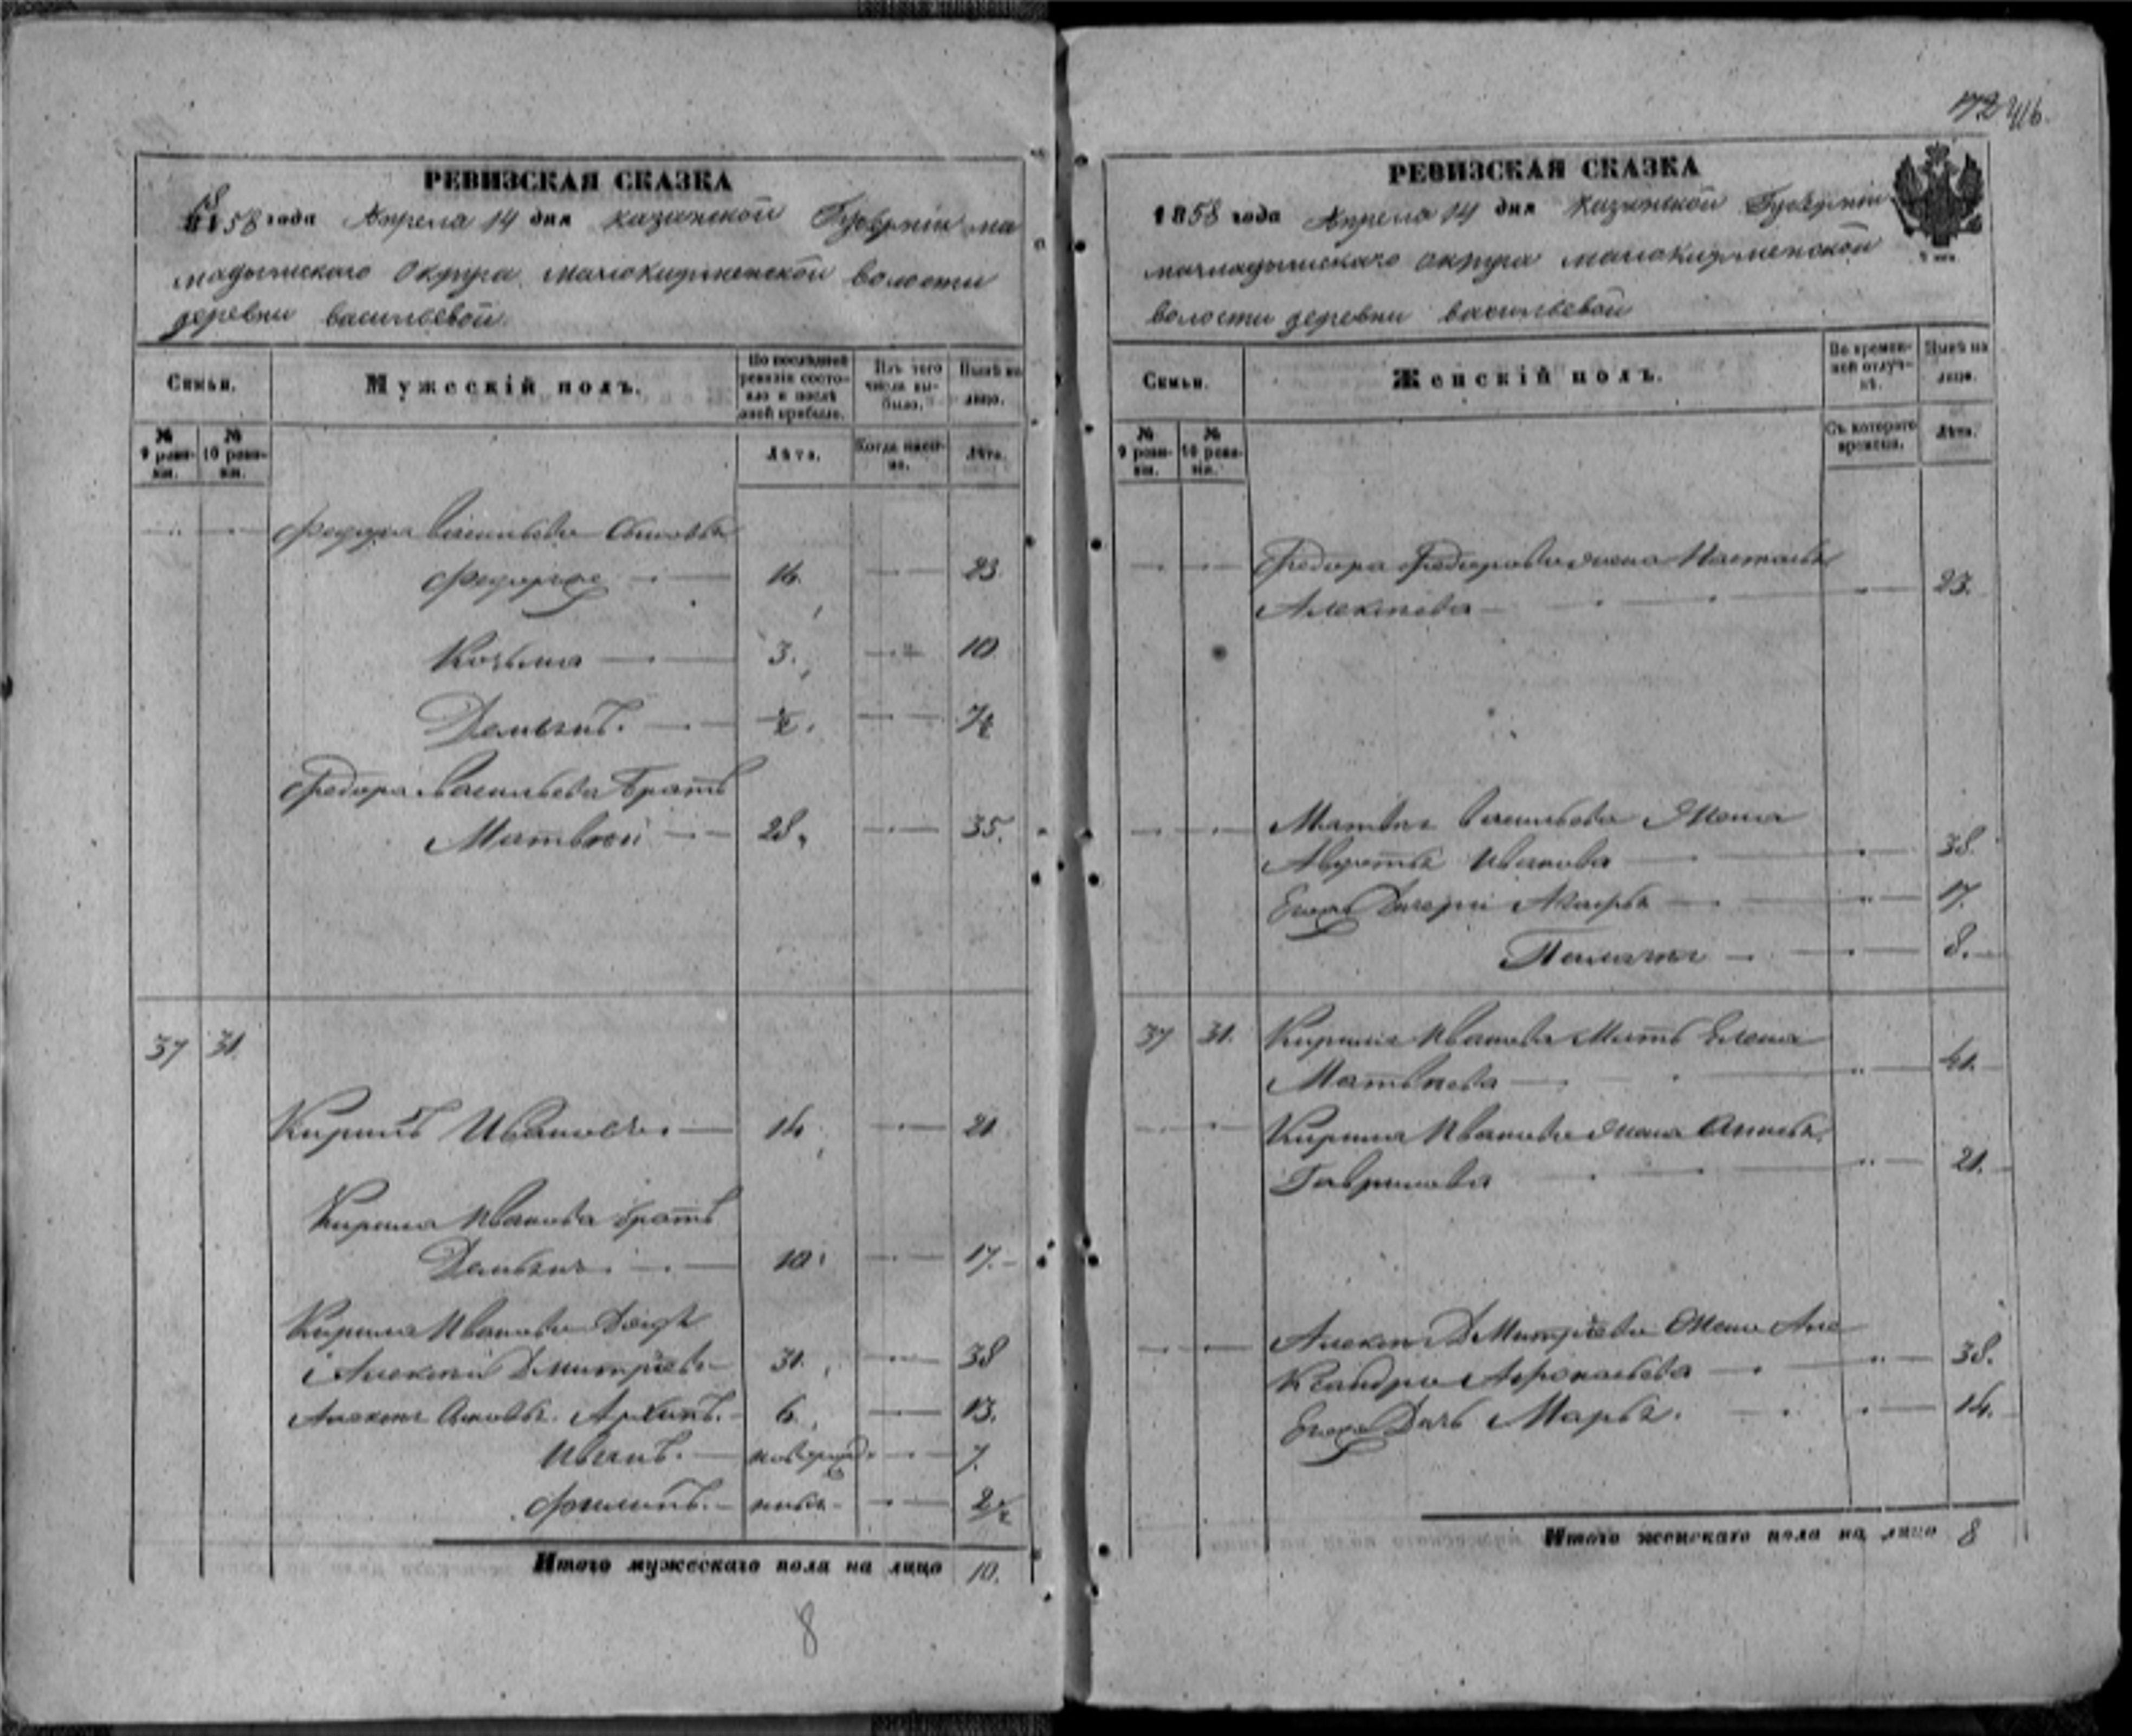 РЕВИЗСКАЯ СКАЗКА
1858 года Апреля 14 дня Казанской Губернии ма
мадышскаго Округа малокирменской волости
деревни васильевой.
Семьи.
Мужескій полъ.
По последней ревизіи состояло и после оной прибыло.
Изъ того числа выбыло.
Ныне на лицо.
№ 9 ревизіи.
№ 10 ревизіи.
Лѣта.
Когда именно.
Лѣта.
Федора васильева Сыновья
Федоръ 16. 23.
Козьма 3. 10
Демьянъ. ½. 7½
Федора васильева Братъ
Матвей 28. 35.
37 31.
Кирилъ Ивановъ. 14 21
Кирила Иванова братъ
Демьянъ 10. 17.
Кирила Иванова Дядя
Алексей Дмитріевъ 31. 38
Алексея Сыновья. Архипъ. 6. 13.
Иванъ. новорожд. 7.
Филипъ. 2½
Итого мужескаго пола на лицо 10.
8
416.
РЕВИЗСКАЯ СКАЗКА
1858 года Апреля 14 дня Казанской Губерніи
мамадышскаго округа малокирменской
волости деревни васильевой
Семьи.
Женскій полъ.
Во временной отлучкѣ.
Ныне на лицо.
№ 9 ревизіи.
№ 10 ревизіи.
Съ котораго времени.
Лѣта.
Федора Федорова жена Настасья
Алексеева 23.
Матвея васильева жена
Авдотья Иванова 38.
Его Дочери Марья 17.
Пелагея 8.
37 31. Кирила Иванова Мать Елена
Матвеева 41.
Кирила Иванова жена
Гаврилова 21.
Алексея Дмитріева Жена Але
ксандра Афонасьева 38.
Его Дочь Марья. 14.
Итого женскаго пола на лицо 8